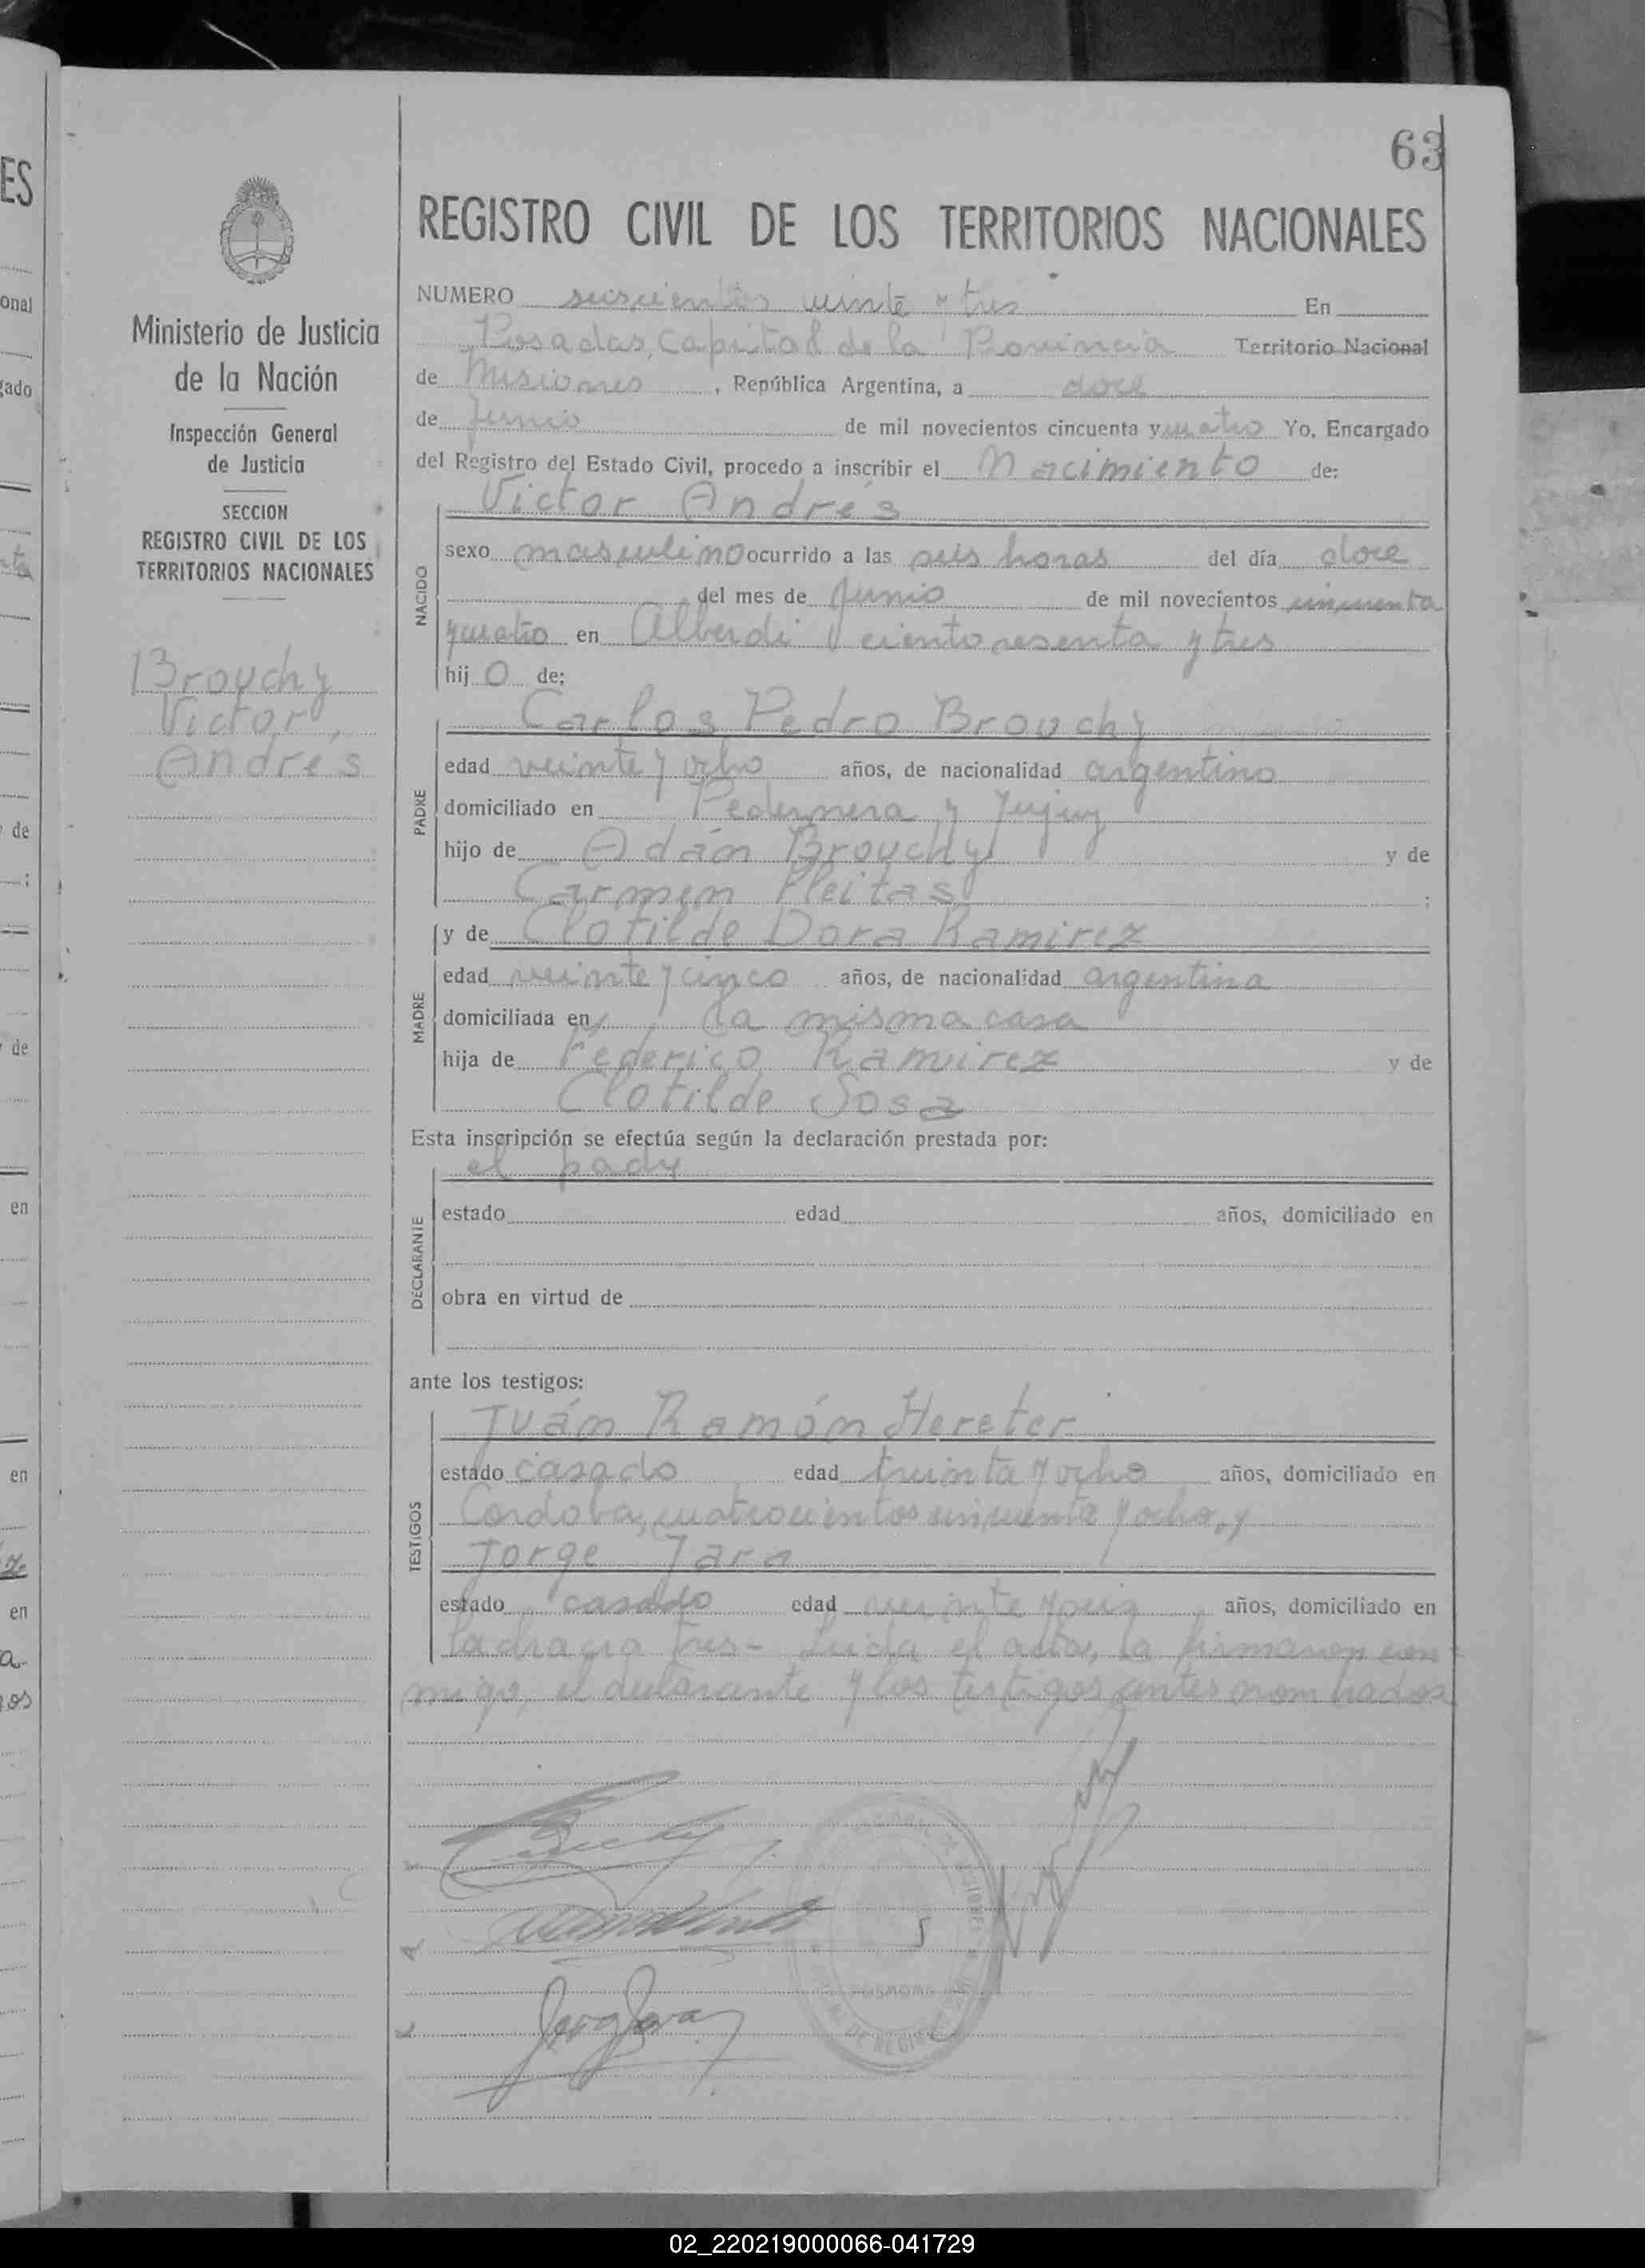 63
REGISTRO CIVIL DE LOS TERRITORIOS NACIONALES
Ministerio de Justicia
de la Nación
Inspección General
de Justicia
SECCION
REGISTRO CIVIL DE LOS
TERRITORIOS NACIONALES
Brouchy
Victor,
Andrés
NUMERO seiscientos veinte y tres En
Posadas, Capital de la Provincia Territorio Nacional
de Misiones, República Argentina, a doce
de Junio de mil novecientos cincuenta y cuatro Yo, Encargado
del Registro del Estado Civil, procedo a inscribir el Nacimiento de:
NACIDO
Victor Andrés
sexo masculino ocurrido a las seis horas del día doce
del mes de Junio de mil novecientos cincuenta
y cuatro en Alberdi ciento sesenta y tres
hijo de:
PADRE
Carlos Pedro Brouchy
edad veinte y ocho años, de nacionalidad argentino
domiciliado en Pedernera y Jujuy
hijo de Adán Brouchy y de
Carmen Fleitas ;
MADRE
y de Clotilde Dora Ramirez
edad veinte y cinco años, de nacionalidad argentina
domiciliada en la misma casa
hija de Federico Ramirez y de
Clotilde Sosa
Esta inscripción se efectúa según la declaración prestada por:
DECLARANTE
el padre
estado edad años, domiciliado en
obra en virtud de
ante los testigos:
TESTIGOS
Juán Ramón Hereter
estado casado edad treinta y ocho años, domiciliado en
Cordoba, cuatrocientos cincuenta y ocho, y
Jorge Jara
estado casado edad veinte y seis años, domiciliado en
la chacra tres - Leida el acta, la firmaron con
migo, el declarante y los testigos antes nombrados
POSADAS
ES
onal
gado
de
de
en
en
en
02_220219000066-041729